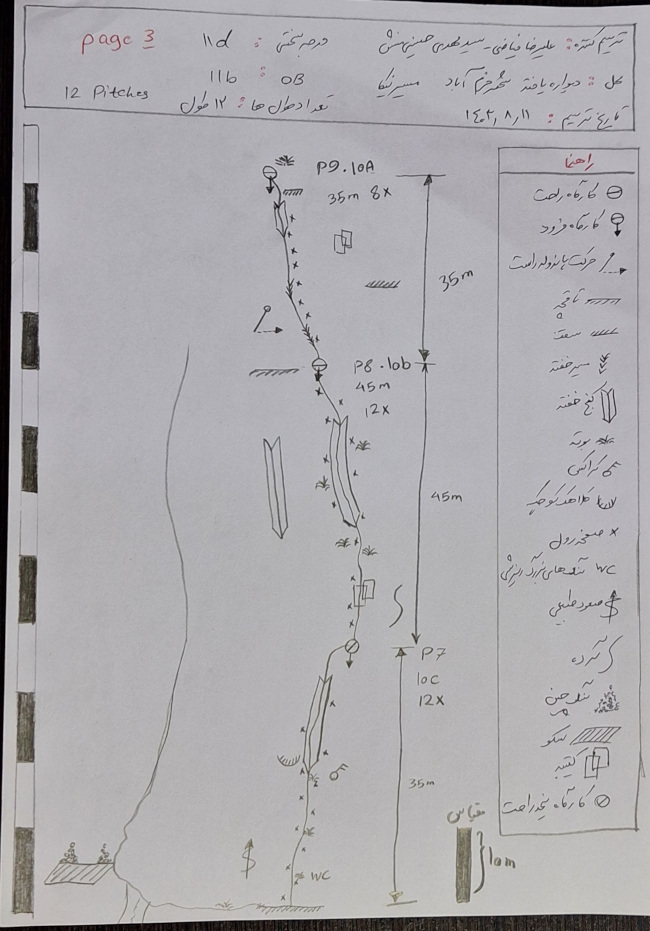 ترسیم کننده: علیرضا فیاضی - سید مهدی حسینی منش درجه سختی: 11d page 3
محل: دیواره یافته شهر خرم آباد مسیر نیکا OB: 11b
تاریخ ترسیم: ۱۴۰۲/۸/۱۱ تعداد طول ها: ۱۲ طول 12 Pitches
راهنما
کارگاه راحت
کارگاه فرود
حرکت پاندولی راست
تاقچه
سقف
مسیر خفته
کنج خفته
بوته
گراکس
کلاهک کوچک
صفحه رول
WC سنگ‌های بزرگ ریزشی
صعود طبیعی
گرده
سنگ چین
سکو
کتیبه
کارگاه نیمه راحت
P9.10A
35m 8x
35m
P8.10b
45m
12x
45m
P7
10c
12x
35m
WC
مقیاس
10m